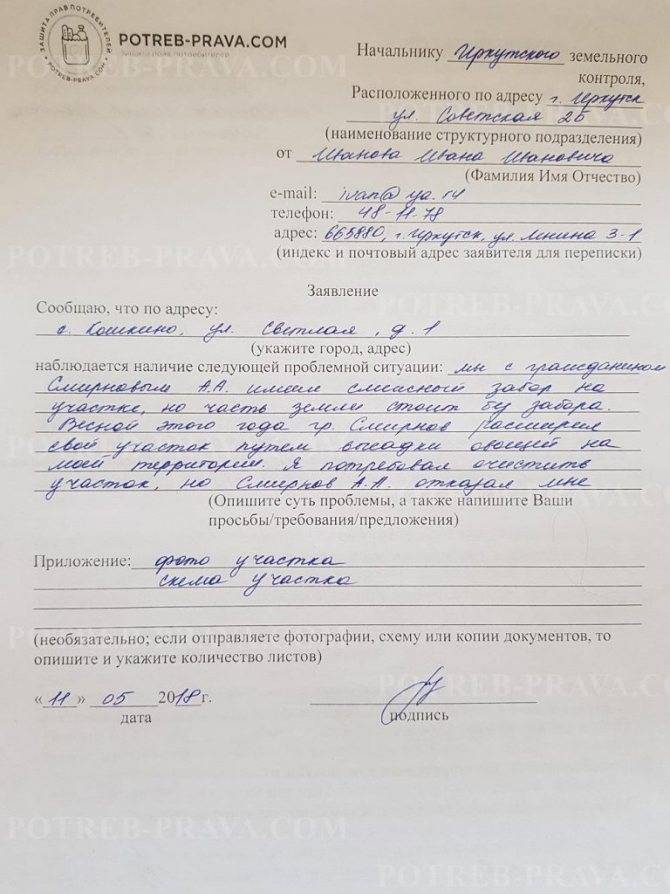 ЗАЩИТА ПРАВ ПОТРЕБИТЕЛЕЙ
POTREB-PRAVA.COM
POTREB-PRAVA.COM
Начальнику Иркутского земельного
контроля,
Расположенного по адресу г. Иркутск
ул. Советская 2б
(наименование структурного подразделения)
от Иванова Ивана Ивановича
(Фамилия Имя Отчество)
e-mail: ivan@ya.ru
телефон: 48-11-78
адрес: 665880, г. Иркутск, ул. Мнина 3-1
(индекс и почтовый адрес заявителя для переписки)
Заявление
Сообщаю, что по адресу:
с. Кошкино, ул. Светлая, д. 1
(укажите город, адрес)
наблюдается наличие следующей проблемной ситуации: мы с гражданином
Смирновым А.А. имеем смежный забор на
участке, но часть земли стоит без забора.
Весной этого года гр. Смирнов расширил
свой участок путем высадки овощей на
моей территории. Я потребовал очистить
участок, но Смирнов А.А. отказал мне
(Опишите суть проблемы, а также напишите Ваши
просьбы/требования/предложения)
Приложение: фото участка
схема участка
(необязательно; если отправляете фотографии, схему или копии документов, то
опишите и укажите количество листов)
«11» 05 2018г.
дата
подпись
POTREB-PRAVA.COM